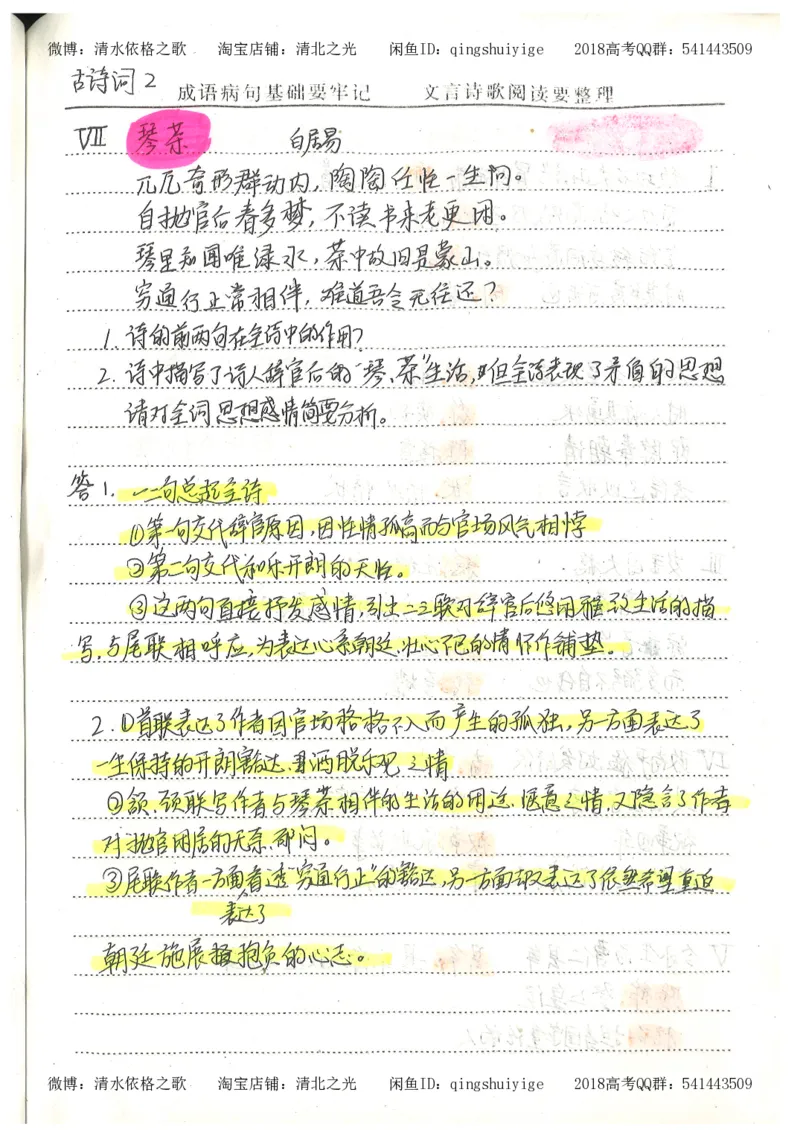 微博：清水依格之歌 淘宝店铺：清北之光 闲鱼ID：qingshuiyige 2018高考QQ群：541443509
古诗词2
成语病句基础要牢记 文言诗歌阅读要整理
VII 琴茶 白居易
兀兀寄形群动内，陶陶任性一生间。
自抛官后春多梦，不读书来老更闲。
琴里知闻唯绿水，茶中故旧是蒙山。
穷通行止常相伴，难道吾今无往还？
1. 诗的前两句在全诗中的作用？
2. 诗中描写了诗人辞官后的“琴、茶”生活，但全诗表现了矛盾的思想
请对全词思想感情简要分析。
答1. 一二句总起全诗
①第一句交代辞官原因，因性情孤高而与官场风气相悖
②第二句交代和乐开朗的天性。
③这两句直接抒发感情，引出二三联对辞官后悠闲雅致生活的描
写，与尾联相呼应，为表达心系朝廷、壮心不已的情怀作铺垫。
2. ①首联表达了作者因官场格格不入而产生的孤独，另一方面表达了
一生保持的开朗豁达、洒脱乐观之情
②颔、颈联写作者与琴茶相伴的生活的闲适、惬意之情，又隐含了作者
对抛官闲居的无奈、郁闷。
③尾联作者一方面看透“穷通行止”的豁达，另一方面却又表达了依然希望重返
表达了
朝廷施展抱负的心志。
微博：清水依格之歌 淘宝店铺：清北之光 闲鱼ID：qingshuiyige 2018高考QQ群：541443509